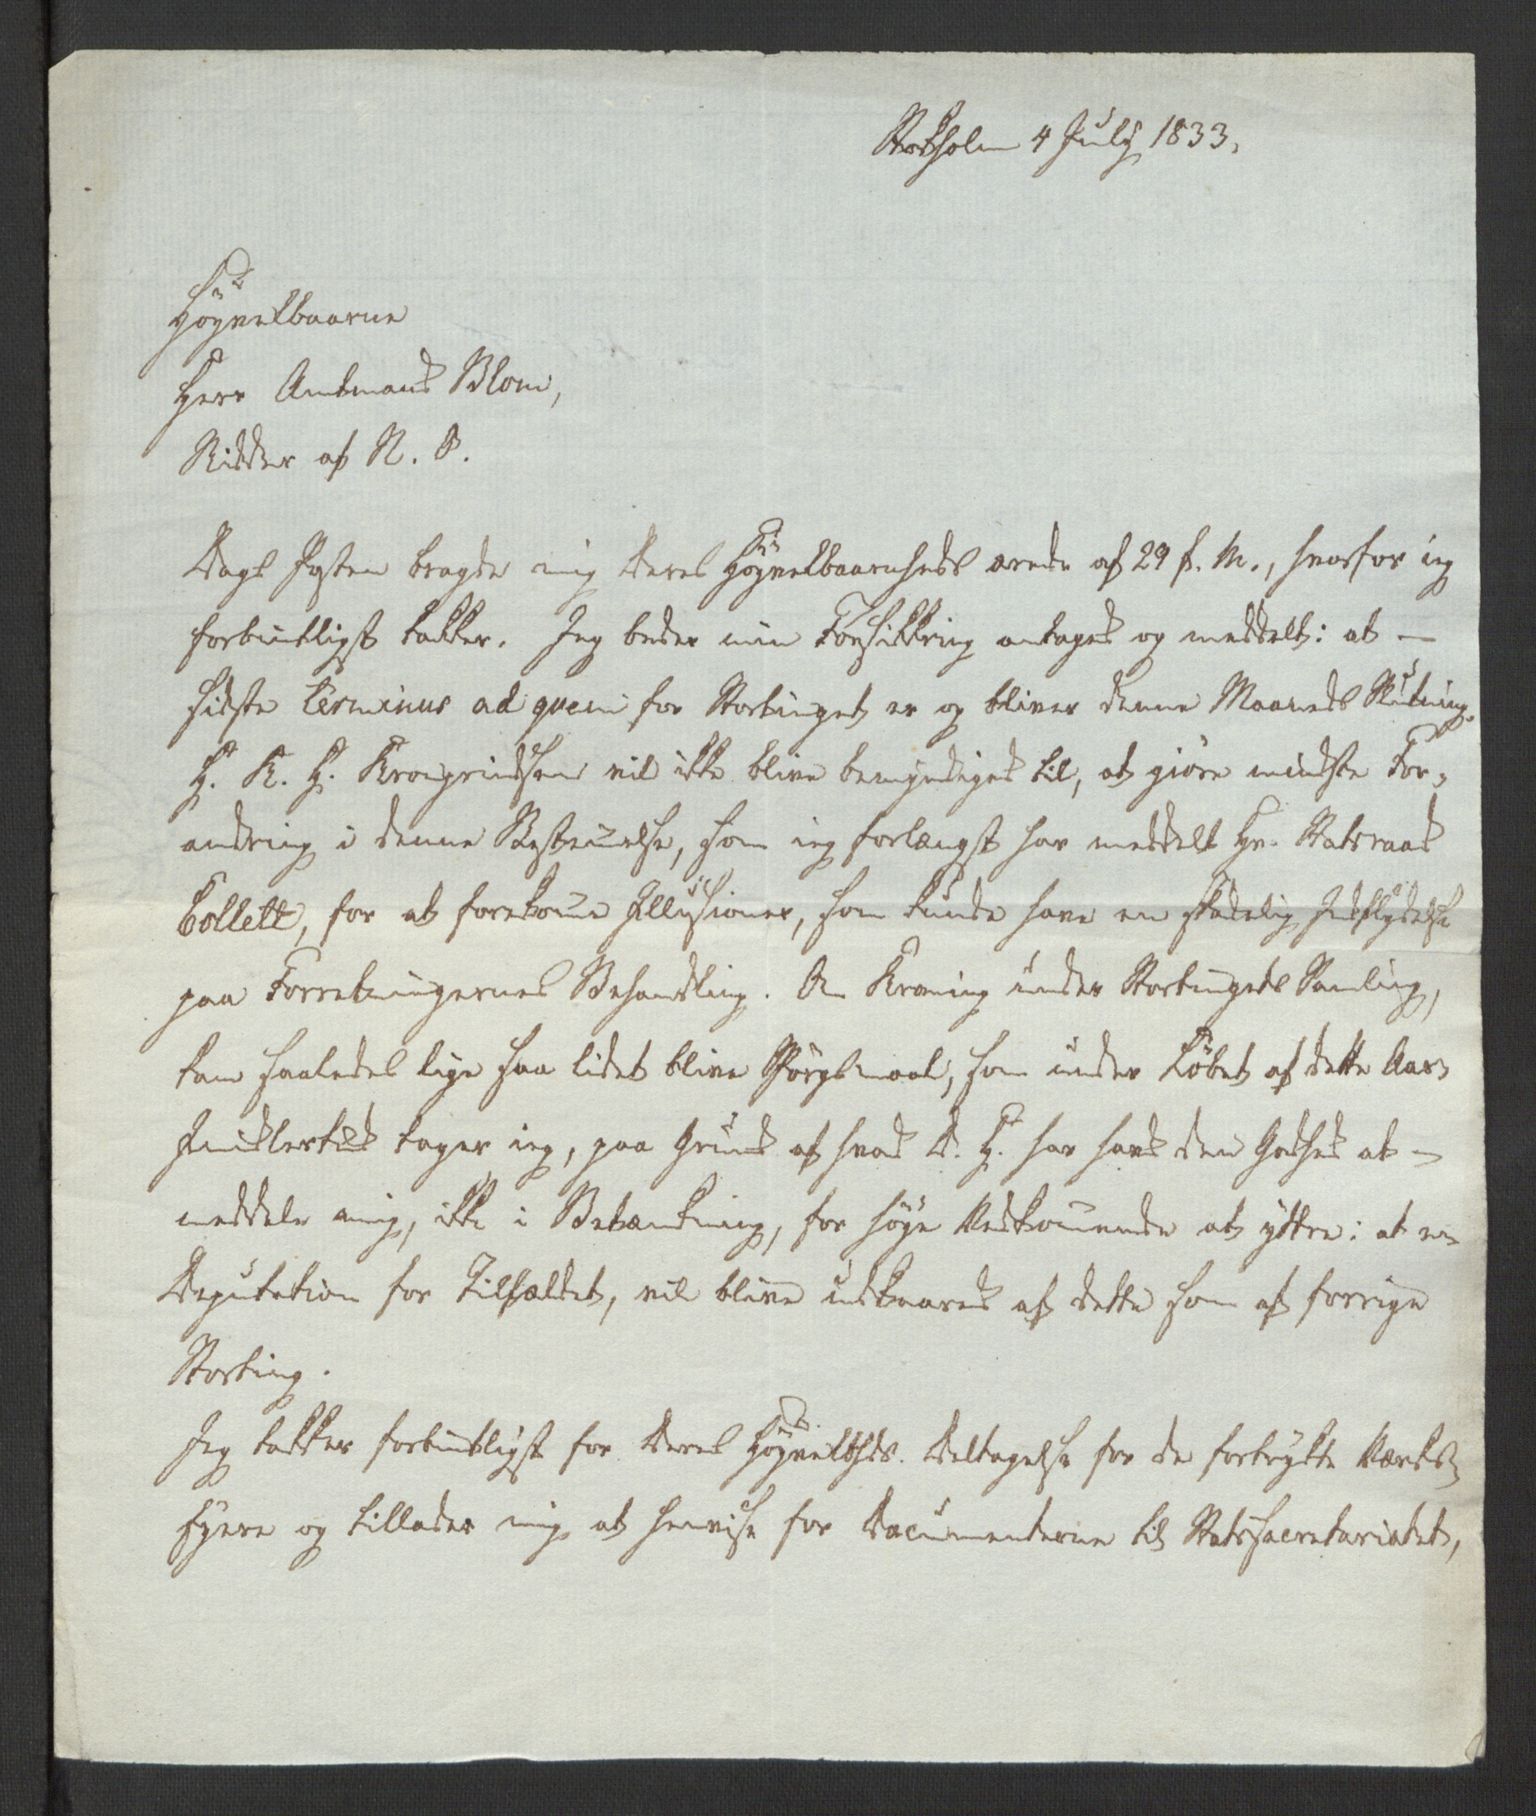 Stockholm 4 July 1833.
Höyvelbaarne
Herr Amtmand Blom,
Ridder af N. O.
Dags Posten bragde mig Deres Höyvelbaarnheds ærede af 29 f. M., hvorfor ieg
forbindtligst takker. Jeg beder min Forsikkring antaget og meddelt: at
sidste terminus ad quem for Stortinget er og bliver denne Maaneds Slutning.
H. K. H. Kronprindsen vil ikke blive bemyndiget til, at giöre mindste For-
andring i denne Bestemelse, som ieg forlængst har meddelt Hr. Statsraad
Collett, for at forekome Illusioner, som kunde have en skadelig Indflydelse
paa Forretningernes Behandling. Om Kroning under Stortingets Samling,
kan saaledes lige saa lidet blive Spörgsmaal, som under Löbet af dette Aar.
Imidlertid tager ieg, paa Grund af hvad D. H. har havt den Godhed at
meddele mig, ikke i Betænkning, for höye Vedkomende at yttre: at en
Deputation for Tilfældet, vil blive udkaaret af dette som af forrige
Storting.
Jeg takker forbindtligst for Deres Höyvelbhds. Deltagelse for de fortrykte Værks-
eyere og tillader mig at henvise for Documenterne til Statssecretariatet,